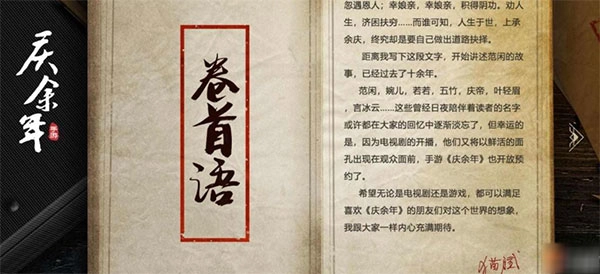 庆余年
手游
卷首语
忽遇恩人；幸娘亲，幸娘亲，积得阴功。劝人
生，济困扶穷……而谁可知，人生于世，上承
余庆，终究却是要自己做出道路抉择。
距离我写下这段文字，开始讲述范闲的故
事，已经过去了十余年。
范闲，婉儿，若若，五竹，庆帝，叶轻眉
，言冰云……这些曾经日夜陪伴着读者的名字
或许都在大家的回忆中逐渐淡忘了，但幸运的
是，因为电视剧的开播，他们又将以鲜活的面
孔出现在观众面前，手游《庆余年》也开放预
约了。
希望无论是电视剧还是游戏，都可以满足
喜欢《庆余年》的朋友们对这个世界的想象。
我跟大家一样内心充满期待。
猫腻